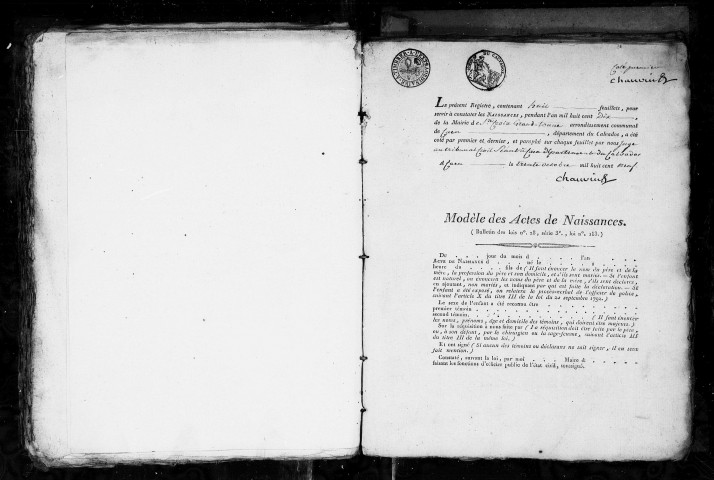 Cote premier
chauvin
Le présent Registre, contenant huit feuillets, pour
servir à constater les NAISSANCES, pendant l'an mil huit cent Dix
de la Mairie de Ste Croix Grand-tonne arrondissement communal
de Caen, département du Calvados, a été
coté par premier et dernier, et paraphé sur chaque feuillet par nous juge
au tribunal Civil Séant à Caen département du Calvados
à Caen le trente octobre mil huit cent neuf
chauvin
Modèle des Actes de Naissances.
( Bulletin des lois nº. 18, série 3e., loi nº. 153. )
Du . . . jour du mois d . . . l'an . . .
ACTE DE NAISSANCE d . . . né le . . .
heure du . . . fils de ( Il faut énoncer le nom du père et de la
mère, la profession du père et son domicile, et s'ils sont mariés. — Si l'enfant
est naturel, on énoncera les noms du père et de la mère, s'ils sont déclarés,
en ajoutant, non mariés, et indiquant par qui est faite la déclaration. — Si
l'enfant a été exposé, on relatera le procès-verbal de l'officier de police,
suivant l'article X du titre III de la loi du 20 septembre 1792.)
Le sexe de l'enfant a été reconnu être . . .
premier témoin . . .
second témoin . . . ( Il faut énoncer
les noms, prénoms, âge et domicile des témoins, qui doivent être majeurs.)
Sur la réquisition à nous faite par ( La réquisition doit être faite par le père,
ou, à son défaut, par le chirurgien ou la sage-femme, suivant l'article III
du titre III de la même loi.)
Et ont signé ( Si aucun des témoins ou déclarans ne sait signer, il en sera
fait mention.)
Constaté, suivant la loi, par moi . . . Maire d . . .
faisant les fonctions d'officier public de l'état civil, soussigné.